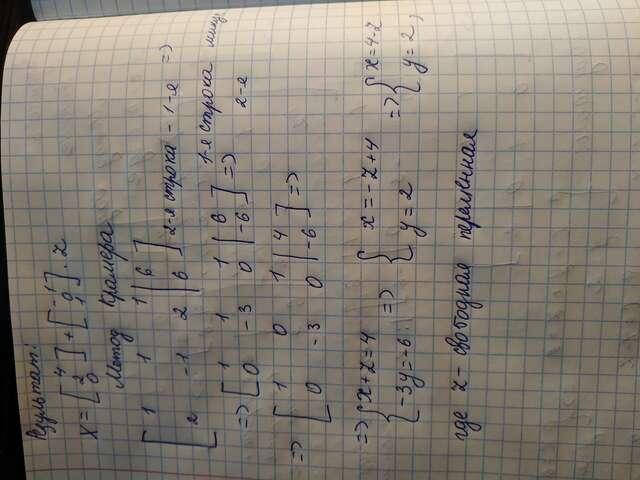 Результат:
X = [4 2 0] + [-1 0 1] · z
Метод Крамера
[1 1 1 | 6
2 -1 2 | 6] 2-я строка - 1-я =>
=> [1 1 1 | 6
0 -3 0 | -6] => 1-я строка
2-я
=> [1 0 1 | 4
0 -3 0 | -6] =>
=> { x+z=4 => { x=-z+4 => { x=4-z
-3y=-6 y=2 y=2,
где z - свободная переменная